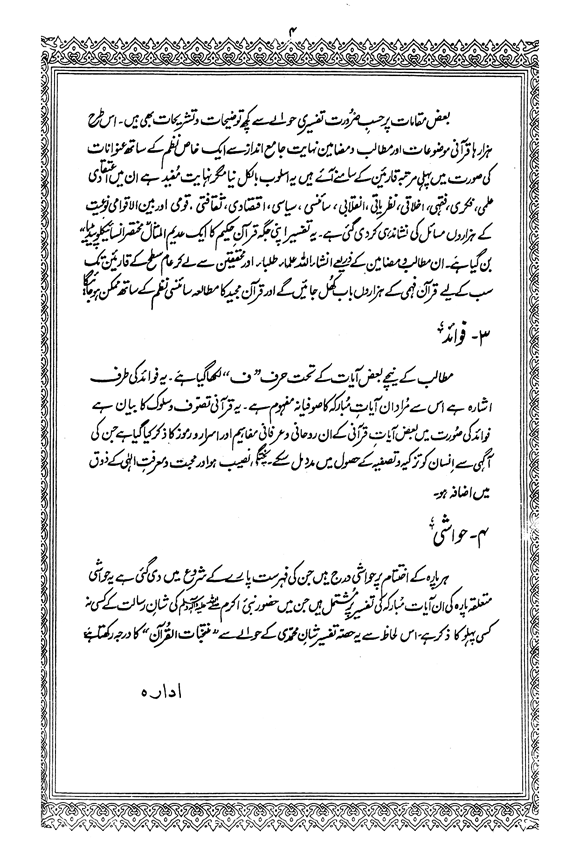 ۴
بعض مقامات پر حسبِ ضرورت تفسیری حوالے سے کچھ توضیحات و تشریحات بھی ہیں۔ اس طرح
ہزارہا قرآنی موضوعات اور مطالب و مضامین نہایت جامع انداز سے ایک خاص نظم کے ساتھ عنوانات
کی صورت میں پہلی مرتبہ قارئین کے سامنے آئے ہیں یہ اسلوب بالکل نیا مگر نہایت مُفید ہے ان میں اعتقادی
علمی، فکری، فقہی، اخلاقی، نظریاتی، انقلابی، سائنسی، سیاسی، اقتصادی، ثقافتی، قومی اور بین الاقوامی نوعیت
کے ہزاروں مسائل کی نشاندہی کر دی گئی ہے۔ یہ تفسیر اپنی جگہ قرآنِ حکیم کا ایک عدیم المثال مختصر انسائیکلوپیڈیا"
بن گیا ہے۔ ان مطالب و مضامین کے ذریعے انشاء اللہ علماء، طلباء اور محققین سے لے کر عام سطح کے قارئین تک
سب کے لیے قرآن فہمی کے ہزاروں باب کُھل جائیں گے اور قرآن مجید کا مطالعہ سائنسی نظم کے ساتھ ممکن ہو جائیگا
۳۔ فوائد
مطالب کے نیچے بعض آیات کے تحت حرف "ف" لکھا گیا ہے۔ یہ فوائد کی طرف
اشارہ ہے اس سے مُراد ان آیاتِ مُبارکہ کا صوفیانہ مفہوم ہے۔ یہ قرآنی تصوّف و سلوک کا بیان ہے
فوائد کی صورت میں بعض آیاتِ قرآنی کے ان روحانی و عرفانی مفاہیم اور اسرار و رموز کا ذکر کیا گیا ہے جن کی
آگہی سے انسان کو تزکیہ و تصفیہ کے حصول میں مدد مل سکے۔ پختگی نصیب ہو اور محبت و معرفتِ الٰہی کے ذوق
میں اضافہ ہو۔
۴۔ حواشی
ہر پارہ کے اختتام پر حواشی درج ہیں جن کی فہرست پارے کے شروع میں دی گئی ہے یہ حواشی
متعلقہ پارہ کی ان آیات مُبارکہ کی تفسیر پر مُشتمل ہیں جن میں حضور نبیٔ اکرم صلی اللہ علیہ وسلم کی شانِ رسالت کے کسی نہ
کسی پہلو کا ذکر ہے۔ اس لحاظ سے یہ حصّہ تفسیر شانِ محمدی کے حوالے سے " القُرآن" کا درجہ رکھتا ہے
ادارہ